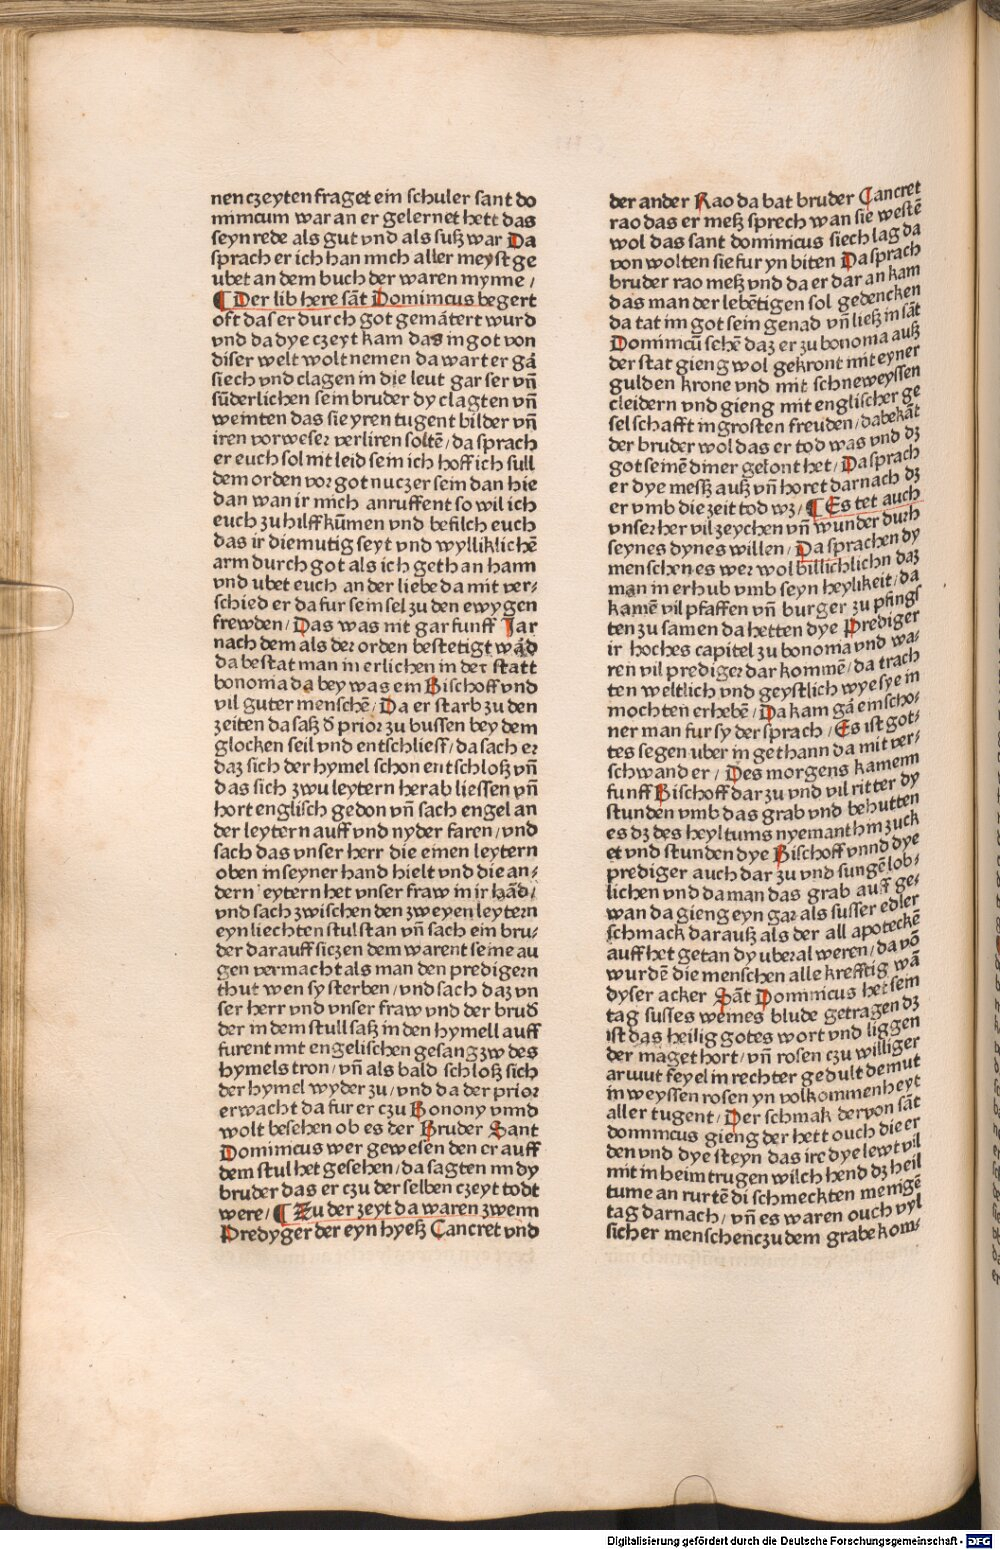 nen czeyten fraget ein schuler sant do
minicum war an er gelernet hett das
seyn rede als gut vnd als suß war Da
sprach er ich han mich aller meyst ge
ubet an dem buch der waren mynne /
¶ Der lib here sāt Dominicus begert
oft das er durch got gemātert wurd
vnd da dye czeyt kam das in got von
diser welt wolt nemen da wart er gā
siech vnd clagen in die leut gar ser vn̄
sūderlichen sein bruder dy clagten vn̄
weinten das sie yren tugent bilder vn̄
iren vorweser verliren soltē / da sprach
er euch sol nit leid sein ich hoff ich sull
dem orden vor got nuczer sein dan hie
dan wan ir mich anruffent so wil ich
euch zu hilff kūmen vnd befilch euch
das ir diemutig seyt vnd wylliklichē
arm durch got als ich gethan hann
vnd ubet euch an der liebe da mit ver⸗
schied er da fur sein sel zu den ewygen
frewden / Das was nit gar funff Jar
nach dem als der orden bestetigt wād
da bestat man in erlichen in der statt
bononia da bey was ein Bischoff vnd
vil guter menschē / Da er starb zu den
zeiten da saß d̄ prior zu bussen bey dem
glocken seil vnd entschlieff / da sach er
daz sich der hymel schon entschloß vn̄
das sich zwu leytern herab liessen vn̄
hort englisch gedon vn̄ sach engel an
der leytern auff vnd nyder faren / vnd
sach das vnser herr die einen leytern
oben in seyner hand hielt vnd die an⸗
dern eytern het vnser fraw in ir hād /
vnd sach zwischen den zweyen leytern
eyn liechten stul stan vn̄ sach ein bru⸗
der darauff siczen dem warent seine au
gen vermacht als man den predigern
thut wen sy sterben / vnd sach daz vn
ser herr vnd vnser fraw vnd der brud̄
der in dem stull saß in den hymell auff
furent mit engelischen gesang zw des
hymels tron / vn̄ als bald schloß sich
der hymel wyder zu / vnd da der prior
erwacht da fur er czu Bonony vnnd
wolt besehen ob es der Bruder Sant
Dominicus wer gewesen den er auff
dem stul het gesehen / da sagten im dy
bruder das er czu der selben czeyt todt
were / ¶ Zu der zeyt da waren zwenn
Predyger der eyn hyeß Cancret vnd
der ander Rao da bat bruder Cancret
rao das er meß sprech wan sie westē
wol das sant dominicus siech lag da
von wolten sie fur yn biten Da sprach
bruder rao meß vnd da er dar an kam
das man der lebētigen sol gedencken
da tat im got sein genad vn̄ ließ in sāt
Dominicū schē daz er zu bononia auß
der stat gieng wol gekront mit eyner
gulden krone vnd mit schneweyssen
cleidern vnd gieng mit englischer ge
selschafft in grosten freuden / da bekāt
der bruder wol das er tod was vnd dz
got seinē diner gelont het / Da sprach
er dye messz auß vn̄ horet darnach dz
er vmb die zeit tod wz / ¶ Es tet auch
vnser her vil zeychen vn̄ wunder durh
seynes dynes willen / Da sprachen dy
menschen es wer wol billichlichn daz
man in erhub vmb seyn heylikeit / da
kamē vil pfaffen vn̄ burger zu pfings
ten zu samen da hetten dye Prediger
ir hoches capitel zu bononia vnd wa⸗
ren vil prediger dar kommē / da trach
ten weltlich vnd geystlich wye sye in
mochten erhebē / Da kam gā ein scho⸗
ner man fur sy der sprach / Es ist got⸗
tes segen uber in gethann da mit ver⸗
schwand er / Des morgens kamenn
funff Bischoff dar zu vnd vil ritter dy
stunden vmb das grab vnd behutten
es dz des heyltums nyemant hin zuck
et vnd stunden dye Bischoff vnnd dye
prediger auch dar zu vnd sungē lob⸗
lichen vnd da man das grab auff ge⸗
wan da gieng eyn gar als susser edler
schmack darauß als der all apoteckē
auff het getan dy uberal weren / da vō
wurdē die menschen alle krefftig wā
dyser acker Sāt Dominicus het sein
tag susses weines blude getragen dz
ist das heilig gotes wort vnd liggen
der maget hort / vn̄ rosen czu williger
armut feyel in rechter gedult demut
in weyssen rosen yn volkommenheyt
aller tugent / Der schmak der von sāt
dominicus gieng der hett ouch die er
den vnd dye steyn das ire dye lewt vil
mit in heim trugen wilch hend dz heil
tume an rurtē di schmeckten menigē
tag darnach / vn̄ es waren ouch vyl
sicher menschen czu dem grabe kom⸗
Digitalisierung gefördert durch die Deutsche Forschungsgemeinschaft - DFG